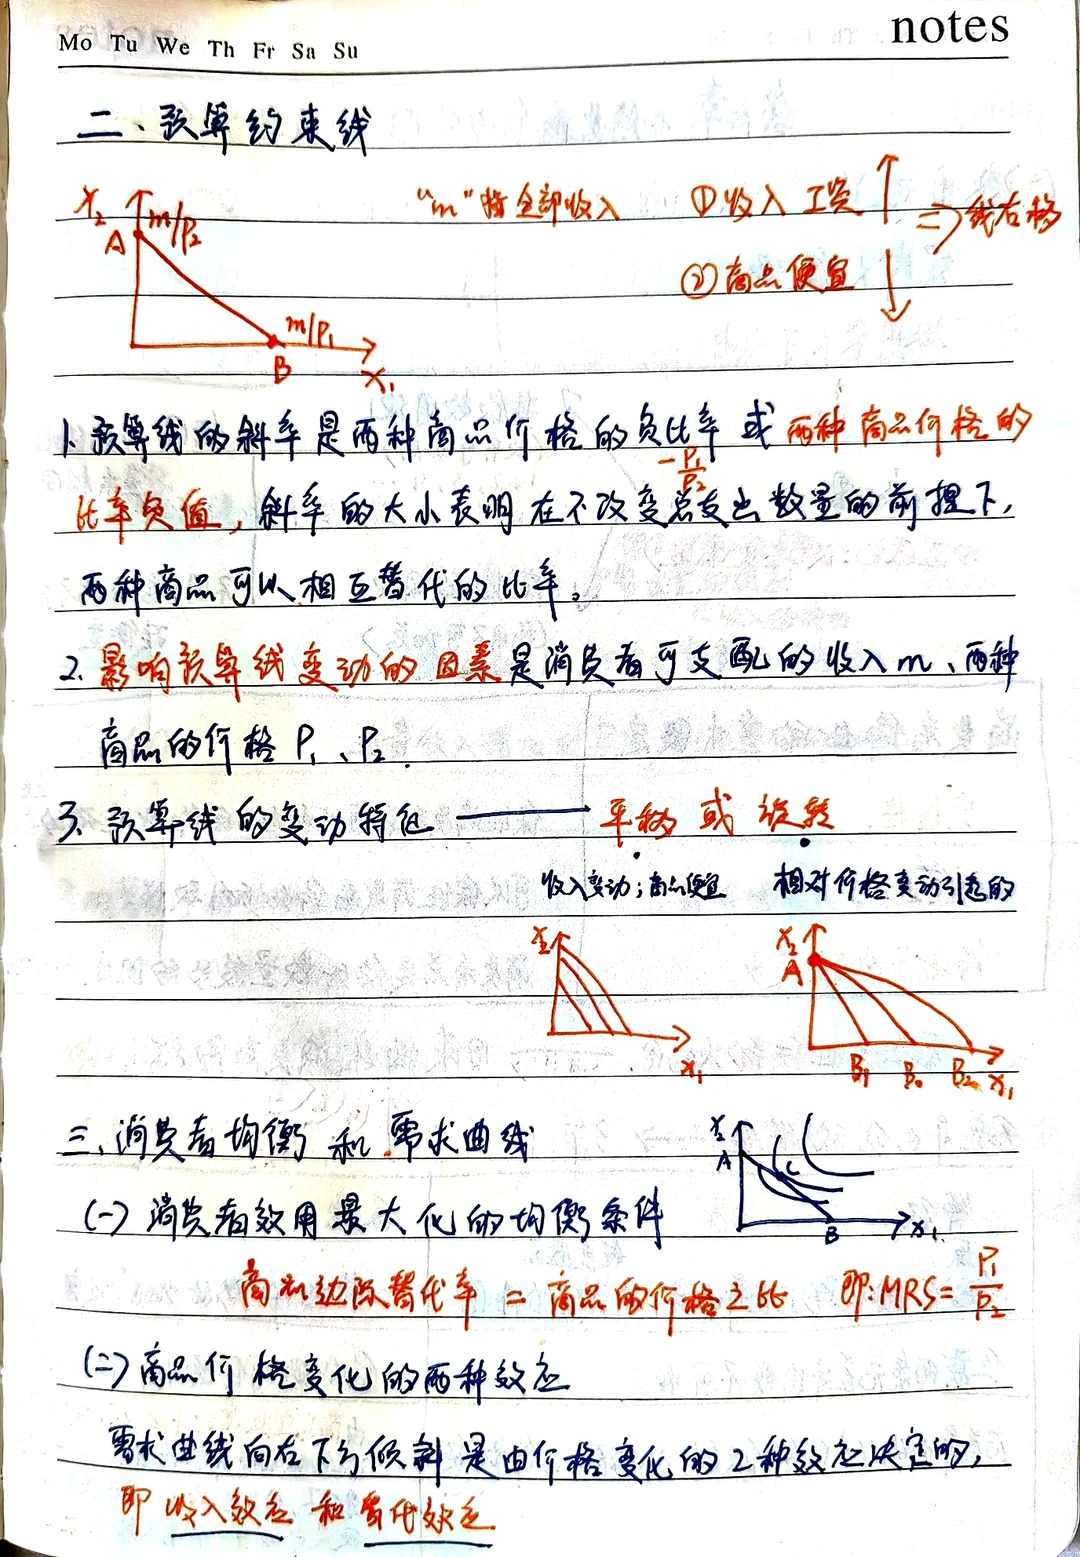 notes
Mo Tu We Th Fr Sa Su
二、预算约束线
X₂ m/P₂ "m"指全部收入 ①收入 工资 ↑ ⇒线右移
A
②商品便宜 ↓
m/P₁
B X₁
1.预算线的斜率是两种商品价格的负比率 或 两种商品价格的
-P₁/P₂
比率负值,斜率的大小表明在不改变总支出数量的前提下,
两种商品可以相互替代的比率。
2.影响预算线变动的因素是消费者可支配的收入m、两种
商品的价格P₁、P₂.
3.预算线的变动特征 —— 平移 或 旋转
收入变动;商品便宜 相对价格变动引起的
X₂ X₂
A
X₁ B₁ B₀ B₂ X₁
三、消费者均衡 和 需求曲线
X₂
A C
(一)消费者效用最大化的均衡条件
B X₁
商品边际替代率 = 商品的价格之比 即:MRS=P₁/P₂
(二)商品价格变化的两种效应
需求曲线向右下方倾斜是由价格变化的2种效应决定的,
即 收入效应 和 替代效应